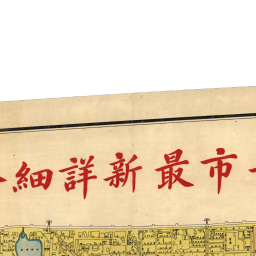 市最新詳細